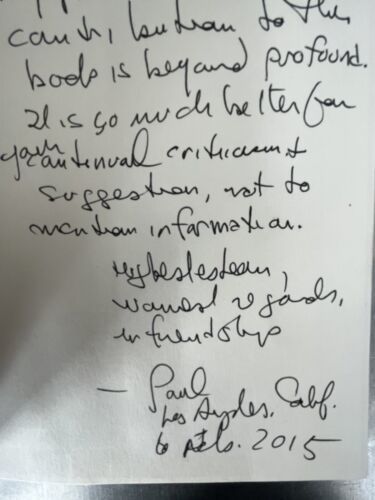 contribution to this
book is beyond profound.
It is so much better for
your continual criticism &
suggestion, not to
mention information.
Highest esteem,
warmest regards,
in friendship
— Paul
Los Angeles, Calif.
6 2015